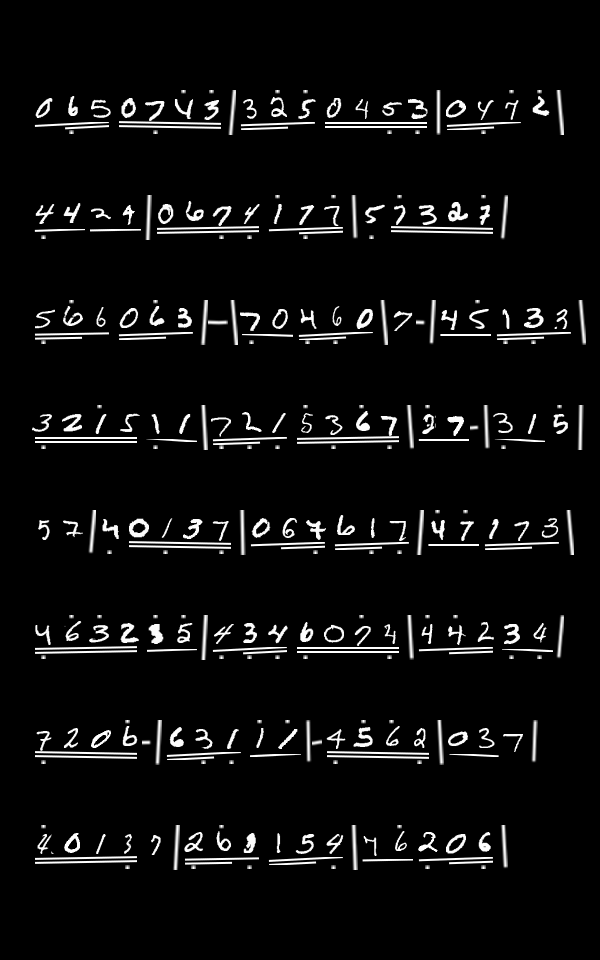 0650743|3250453|0472
4424|0674177|57327
566063|-|70460|7-|45133
321511|7215367|27-|315
57|40137|067617|47173
4632115|4346072|44234
7206-|63111|-4562|037
40137|261154|76206